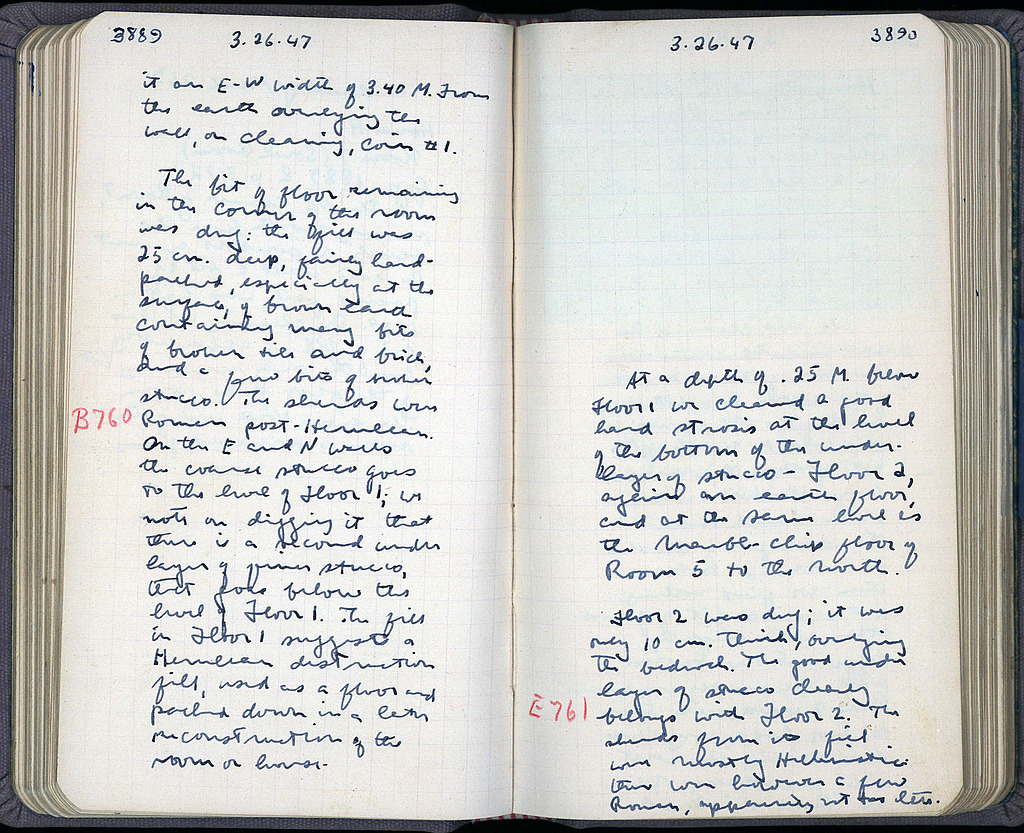 3889
3.26.47
it an E-W width of 3.40 M. From
the earth overlying the
wall, on cleaning, coin #1.
The bit of floor remaining
in the corner of this room
was dug: the fill was
25 cm. deep, fairly hard-
packed, especially at the
surface, of brown earth
containing many bits
of broken tile and brick,
and a few bits of broken
stucco. The sherds were
B760
Roman post-Herulean.
On the E and N walls
the coarse stucco goes
to the level of Floor 1; we
note on digging it that
there is a second under
layer of finer stucco,
that goes below the
level of Floor 1. The fill
in Floor 1 suggests a
Herulean destruction
fill, used as a floor and
packed down in a later
reconstruction of the
room or house.
3.26.47
3890
At a depth of .25 M. below
Floor 1 we cleaned a good
hard strosis at the level
of the bottom of the under-
layer of stucco - Floor 2,
again an earth floor,
and at the same level is
the marble-chip floor of
Room 5 to the north.
Floor 2 was dug; it was
only 10 cm. thick, overlying
the bedrock. The good under
layer of stucco clearly
E761
belongs with Floor 2. The
sherds from its fill
were mostly Hellenistic.
there were however a few
Roman, apparently not too late.